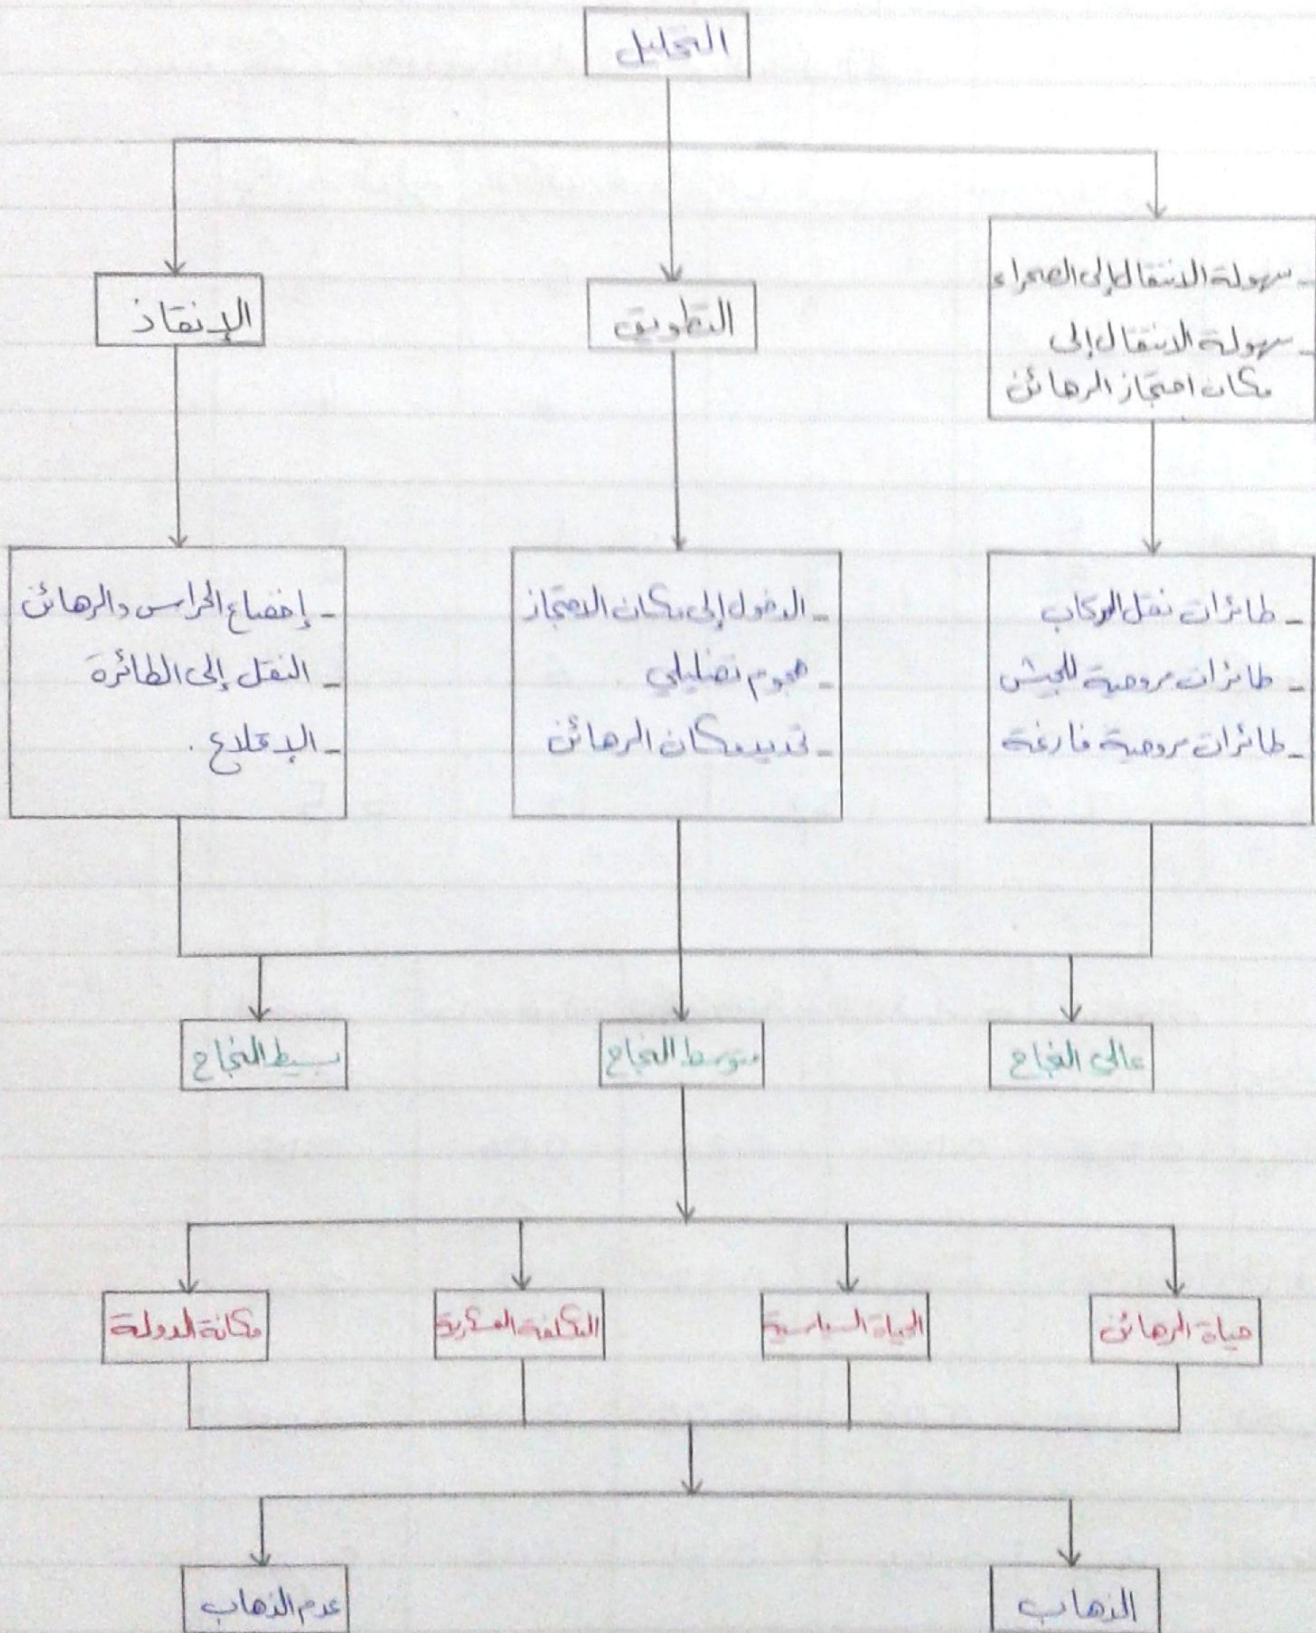 التحليل
- سهولة الانتقال إلى الصحراء
- سهولة الانتقال إلى
مكان احتجاز الرهائن
التطويق
الإنقاذ
- طائرات نقل الركاب
- طائرات مروحية للجيش
- طائرات مروحية فارغة
- الدخول إلى مكان الاحتجاز
- هجوم تضليلي
- تحديد مكان الرهائن
- إخضاع الحراس والرهائن
- النقل إلى الطائرة
- الإقلاع.
عالي النجاح
متوسط النجاح
بسيط النجاح
حياة الرهائن
الحياة السياسية
التكلفة العسكرية
مكانة الدولة
الذهاب
عدم الذهاب